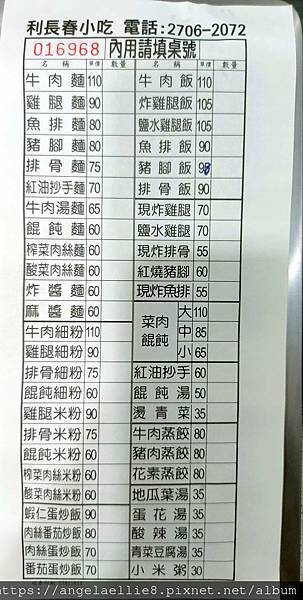 利長春小吃 電話:2706-2072
016968 內用請填桌號
名稱 單價 數量 名稱 單價 數量
牛肉麵 110 牛肉飯 110
雞腿麵 90 炸雞腿飯 105
魚排麵 80 鹽水雞腿飯 105
豬腳麵 80 魚排飯 90
排骨麵 75 豬腳飯
紅油抄手麵 70 排骨飯 90
牛肉湯麵 65 現炸雞腿 70
餛飩麵 60 鹽水雞腿 70
榨菜肉絲麵 60 現炸排骨 55
酸菜肉絲麵 60 紅燒豬腳 60
炸醬麵 60 現炸魚排 55
麻醬麵 60 菜肉餛飩 大 110
牛肉細粉 110 中 85
雞腿細粉 90 小 65
排骨細粉 75 紅油抄手 60
餛飩細粉 60 餛飩湯 50
雞腿米粉 90 燙青菜 35
排骨米粉 75 牛肉蒸餃 80
餛飩米粉 60 豬肉蒸餃 80
榨菜肉絲米粉 60 花素蒸餃 80
酸菜肉絲米粉 60 地瓜葉湯 35
蝦仁蛋炒飯 90 蛋花湯 35
肉絲番茄炒飯 80 酸辣湯 35
肉絲蛋炒飯 70 青菜豆腐湯 35
番茄蛋炒飯 70 小米粥 30
https://angelaellie8.pixnet.net/album